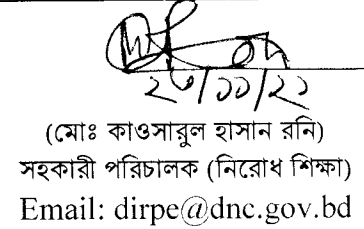 ২৩/১১/২১
(মোঃ কাওসারুল হাসান রনি)
সহকারী পরিচালক (নিরোধ শিক্ষা)
Email: dirpe@dnc.gov.bd